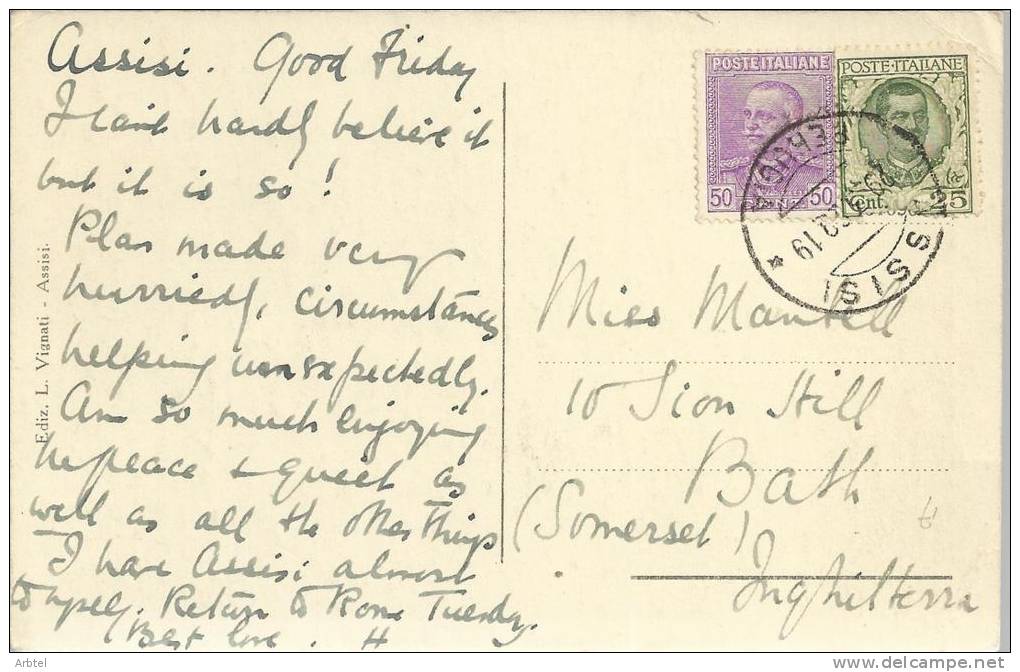 Assisi. Good Friday
I can't hardly believe it
but it is so!
Plan made very
hurriedly, circumstances
helping unexpectedly.
Am so much enjoying
the peace & quiet as
well as all the other things
I have Assisi almost
to myself. Return to Rome Tuesday.
Best love. H
Ediz. L. Vignati - Assisi.
POSTE ITALIANE
50 50
POSTE·ITALIANE
Cent. 25
ASSISI
19
Miss Mantell
10 Sion Hill
Bath
(Somerset)
Inghilterra
Arbtel
delcampe.net